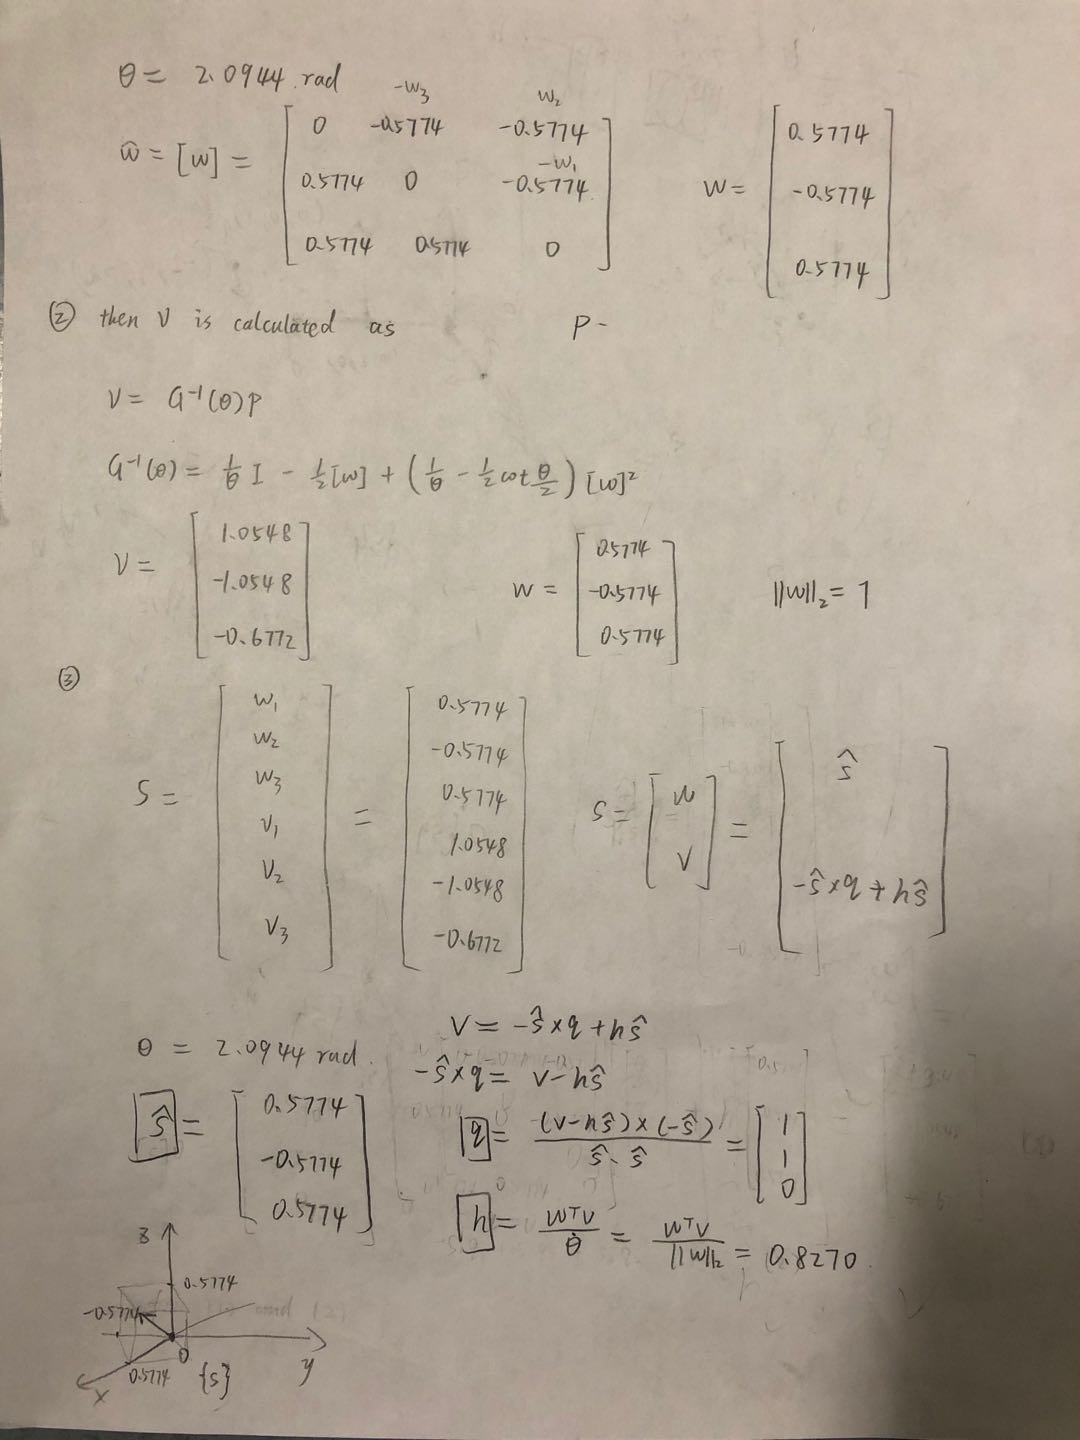 θ = 2.0944 rad
-w₃ w₂
ŵ = [w] = [ 0 -0.5774 -0.5774
-w₁
0.5774 0 -0.5774
0.5774 0.5774 0 ]
w = [ 0.5774
-0.5774
0.5774 ]
② then v is calculated as P -
v = G⁻¹(θ)p
G⁻¹(θ) = 1/θ I - 1/2 [w] + (1/θ - 1/2 cot θ/2) [w]²
v = [ 1.0548
-1.0548
-0.6772 ]
w = [ 0.5774
-0.5774
0.5774 ]
||w||₂ = 1
③
S = [ w₁
w₂
w₃
v₁
v₂
v₃ ]
= [ 0.5774
-0.5774
0.5774
1.0548
-1.0548
-0.6772 ]
S = [ w
v ]
= [ ŝ
-ŝ×q + hŝ ]
θ = 2.0944 rad.
ŝ = [ 0.5774
-0.5774
0.5774 ]
v = -ŝ×q + hŝ
-ŝ×q = v-hŝ
q = (v-hŝ)×(-ŝ) / ŝ·ŝ = [ 1
1
0 ]
h = wᵀv / θ̇ = wᵀv / ||w||₂ = 0.8270
z
0.5774
-0.5774
0
0.5774
{s}
y
x